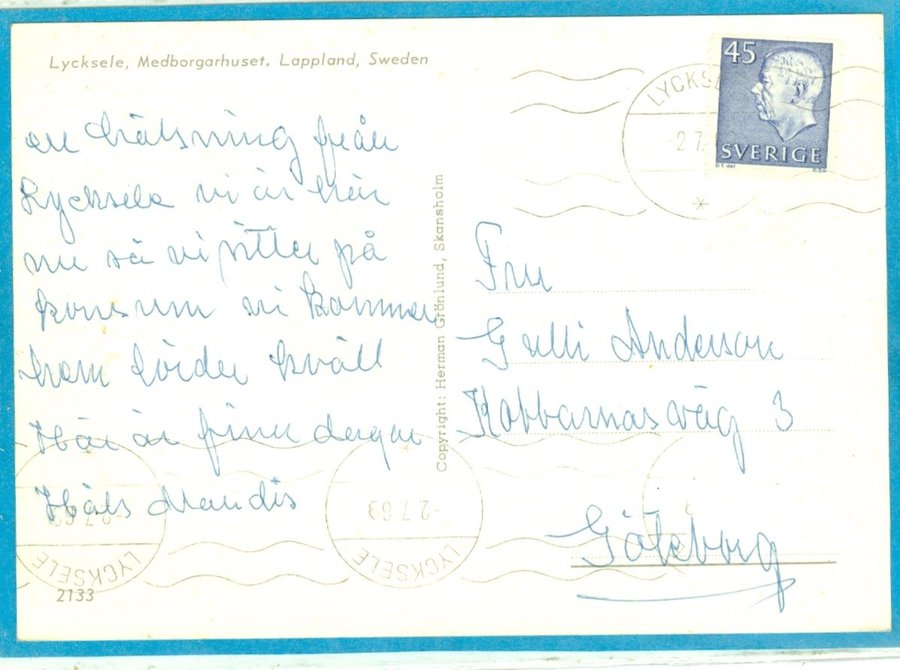 Lycksele, Medborgarhuset. Lappland, Sweden
45
SVERIGE
LYCKSELE
-2.7.
en hälsning från
Lycksele vi är här
nu så vi sitter på
konsum vi kommer
hem lörda kväll
Här är fina dagar
Häls Mandis
Copyright: Herman Grönlund, Skansholm
Fru
Gulli Anderson
Kobbarnas väg 3
Göteborg
-2.7.69
LYCKSELE
-2.7.69
LYCKSELE
2133